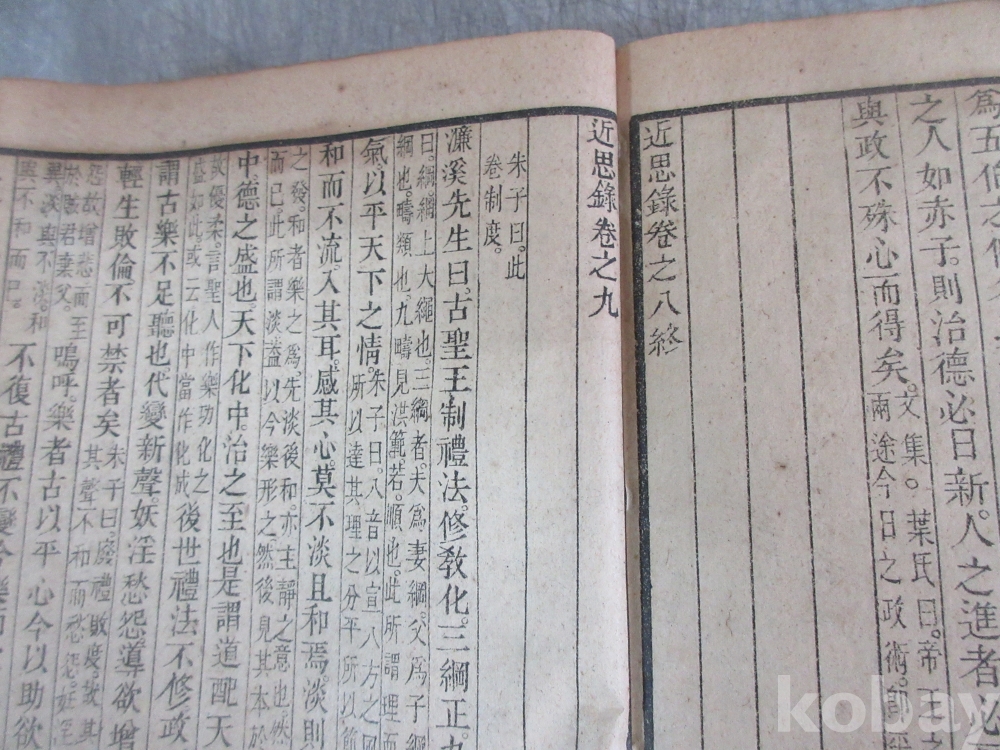 爲五伯之
之人如赤子。則治德必日新。人之進者必
與政不殊心而得矣。文集。葉氏曰。帝王之
兩途今日之政術。師
近思錄卷之八終
近思錄卷之九
朱子曰。此
卷制度。
濂溪先生曰。古聖王制禮法。修敎化。三綱正。九
曰。綱。網上大繩也。三綱者。夫爲妻綱。父爲子
綱也。疇類也。九疇見洪範。若。順也。此所謂理而
氣。以平天下之情。朱子曰。八音以宣八方之
所以達其理之分平所以節
和而不流。入其耳。感其心。莫不淡且和焉。淡則
之發。和者樂之爲。先淡後和。亦主靜之意也。然
而已此所謂淡。蓋以今樂形之。然後見其本於
中。德之盛也。天下化中。治之至也。是謂道配天
故優柔。言聖人作樂功化之
盛如此。或云化中當作化成
後世禮法不修政
謂古樂不足聽也。代變新聲。妖淫愁怨。導欲增
輕生敗倫。不可禁者矣。朱子曰。廢禮敗度。故其
其聲不和而愁怨。妖淫
怨。故增悲。而至
君棄父。
嗚呼。樂者古以平心今以助欲
與不和而已。
不復古禮不變今樂
kobay